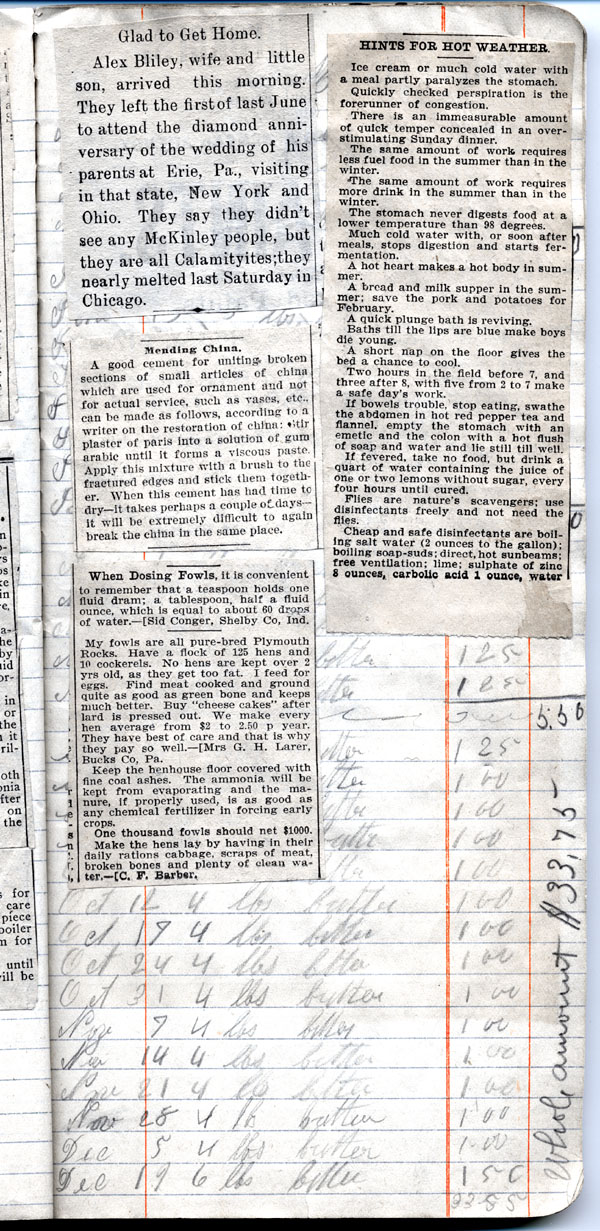 Glad to Get Home.
Alex Bliley, wife and little
son, arrived this morning.
They left the first of last June
to attend the diamond anni-
versary of the wedding of his
parents at Erie, Pa., visiting
in that state, New York and
Ohio. They say they didn't
see any McKinley people, but
they are all Calamityites;they
nearly melted last Saturday in
Chicago.
Mending China.
A good cement for uniting broken
sections of small articles of china
which are used for ornament and not
for actual service, such as vases, etc.,
can be made as follows, according to a
writer on the restoration of china:
plaster of paris into a solution of gum
arabic until it forms a viscous paste.
Apply this mixture with a brush to the
fractured edges and stick them togeth-
er. When this cement has had time to
dry—it takes perhaps a couple of days—
it will be extremely difficult to again
break the china in the same place.
When Dosing Fowls, it is convenient
to remember that a teaspoon holds one
fluid dram; a tablespoon, half a fluid
ounce, which is equal to about 60 drops
of water.—[Sid Conger, Shelby Co, Ind.
My fowls are all pure-bred Plymouth
Rocks. Have a flock of 125 hens and
10 cockerels. No hens are kept over 2
yrs old, as they get too fat. I feed for
eggs. Find meat cooked and ground
quite as good as green bone and keeps
much better. Buy "cheese cakes" after
lard is pressed out. We make every
hen average from $2 to 2.50 p year.
They have best of care and that is why
they pay so well.—[Mrs G. H. Larer,
Bucks Co, Pa.
Keep the henhouse floor covered with
fine coal ashes. The ammonia will be
kept from evaporating and the ma-
nure, if properly used, is as good as
any chemical fertilizer in forcing early
crops.
One thousand fowls should net $1000.
Make the hens lay by having in their
daily rations cabbage, scraps of meat,
broken bones and plenty of clean wa-
ter.—[C. F. Barber.
HINTS FOR HOT WEATHER.
Ice cream or much cold water with
a meal partly paralyzes the stomach.
Quickly checked perspiration is the
forerunner of congestion.
There is an immeasurable amount
of quick temper concealed in an over-
stimulating Sunday dinner.
The same amount of work requires
less fuel food in the summer than in the
winter.
The same amount of work requires
more drink in the summer than in the
winter.
The stomach never digests food at a
lower temperature than 98 degrees.
Much cold water with, or soon after
meals, stops digestion and starts fer-
mentation.
A hot heart makes a hot body in sum-
mer.
A bread and milk supper in the sum-
mer; save the pork and potatoes for
February.
A quick plunge bath is reviving.
Baths till the lips are blue make boys
die young.
A short nap on the floor gives the
bed a chance to cool.
Two hours in the field before 7, and
three after 8, with five from 2 to 7 make
a safe day's work.
If bowels trouble, stop eating, swathe
the abdomen in hot red pepper tea and
flannel, empty the stomach with an
emetic and the colon with a hot flush
of soap and water and lie still till well.
If fevered, take no food, but drink a
quart of water containing the juice of
one or two lemons without sugar, every
four hours until cured.
Flies are nature's scavengers; use
disinfectants freely and not need the
flies.
Cheap and safe disinfectants are boil-
ing salt water (2 ounces to the gallon);
boiling soap-suds; direct, hot sunbeams;
free ventilation; lime; sulphate of zinc
8 ounces, carbolic acid 1 ounce, water
butter 1 25
5.50
1 25
1 00
1 00
1 00
1 00
Oct 12 4 lbs butter 1 00
Oct 17 4 lbs butter 1 00
Oct 24 4 lbs butter 1 00
Oct 31 4 lbs butter 1 00
Nov 7 4 lbs butter 1 00
Nov 14 4 lbs butter 1 00
Nov 21 4 lb butter 1 00
Nov 28 4 lb butter 1 00
Dec 5 4 lbs butter 1 00
Dec 19 6 lbs butter 1 50
33 55
Whole amount $33,75